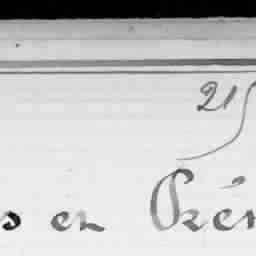 215
s en Prén